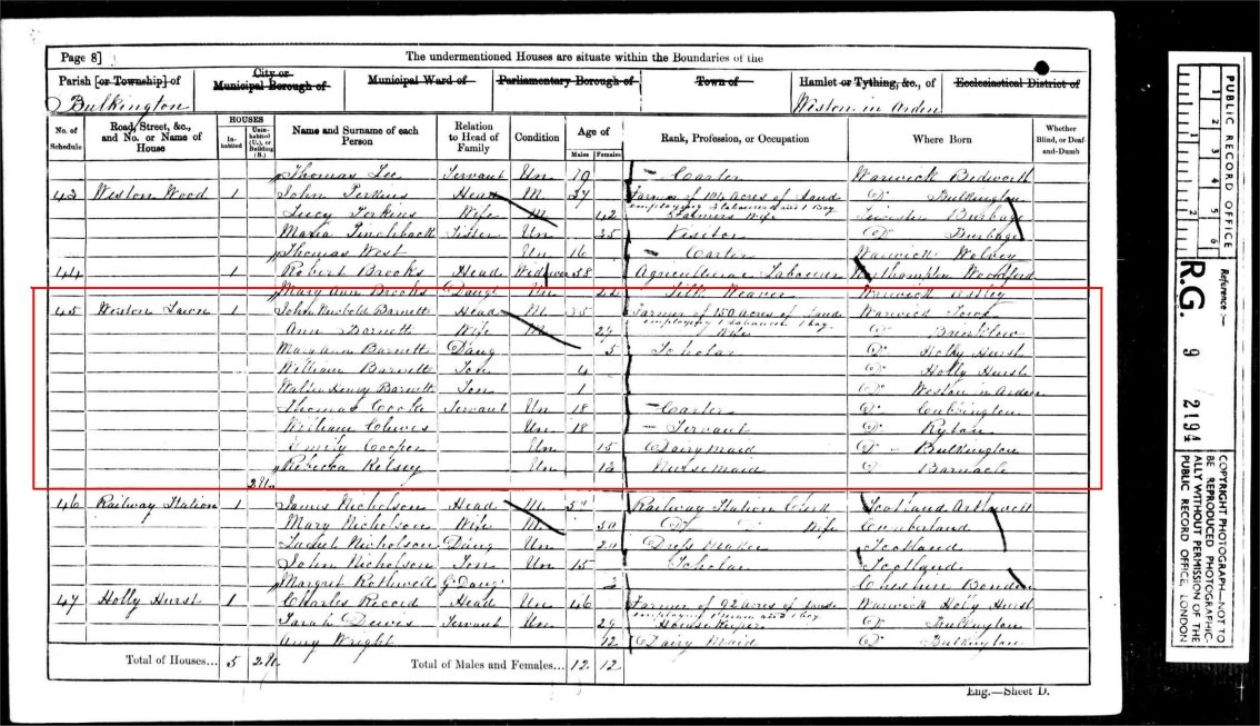 Page 8]
The undermentioned Houses are situate within the Boundaries of the
Parish [or Township] of
Bulkington
City or Municipal Borough of
Municipal Ward of
Parliamentary Borough of
Town of
Hamlet or Tything, &c., of
Weston in Arden
Ecclesiastical District of
No. of Schedule
Road, Street, &c., and No. or Name of House
HOUSES
Inhabited
Uninhabited (U.), or Building (B.)
Name and Surname of each Person
Relation to Head of Family
Condition
Age of
Males
Females
Rank, Profession, or Occupation
Where Born
Whether Blind, or Deaf-and-Dumb
Thomas Lee Servant Un 19 Carter Warwick Bedworth
43 Weston Wood 1 John Perkins Head M 37 Farmer of 104 acres of Land Do Bulkington
employing 3 labourers and 1 Boy
Lucy Perkins Wife M 42 Farmers Wife Leicester Burbage
Maria Pinchback Sister Un 35 Visitor Do Burbage
Thomas West Un 16 Carter Warwick Wolvey
44 1 Robert Brooks Head Widower 58 Agricultural Labourer Northampton Woodford
Mary Ann Brooks Daugr Un 22 Silk Weaver Warwick Astley
45 Weston Lawn 1 John Newbold Barnett Head M 35 Farmer of 150 acres of Land Warwick
employing 1 labourer 1 boy
Ann Barnett Wife M 29 Wife Do Brinklow
Mary Ann Barnett Daug 5 Scholar Do Holly Hurst
William Barnett Son 4 Do Holly Hurst
Walter Henry Barnett Son 1 Do Weston in Arden
Thomas Cooke Servant Un 18 Carter Do Cubbington
William Clewes Un 18 Servant Do Ryton
Emily Cooper Un 15 Dairy Maid Do Bulkington
Rebecca Kelsey Un 12 Nurse Maid Do Barnacle
46 Railway Station 1 James Nicholson Head M Railway Station Scotland
Mary Nicholson Wife M 50 Do Do Wife Cumberland
Nicholson Daug Un 20 Dress Maker Scotland
John Nicholson Son Un 15 Scholar Scotland
Margret Rothwell G Daug 2 Cheshire
47 Holly Hurst 1 Charles Record Head Un 46 Farmer of 92 acres of Land Warwick Holly Hurst
employing 1 man and 1 boy
Sarah Dewis Servant Un 29 House Keeper Do Bulkington
Amy Wright 12 Dairy Maid Do Bulkington
Total of Houses... 5
Total of Males and Females... 12 12
Eng.—Sheet D.
PUBLIC RECORD OFFICE
1 2 3 4 5 6
1 2
Reference :-
R.G. 9 2194
COPYRIGHT PHOTOGRAPH—NOT TO BE REPRODUCED PHOTOGRAPHICALLY WITHOUT PERMISSION OF THE PUBLIC RECORD OFFICE, LONDON